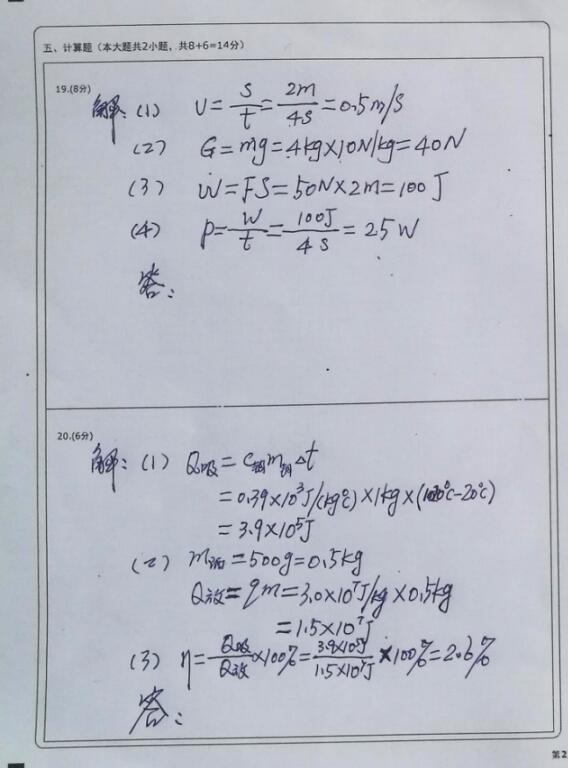 五、计算题（本大题共2小题，共8+6=14分）
19.(8分)
解：(1) v=s/t=2m/4s=0.5m/s
(2) G=mg=4kg×10N/kg=40N
(3) W=FS=50N×2m=100J
(4) P=W/t=100J/4s=25W
答：
20.(6分)
解：(1) Q吸=c铜m铜Δt
=0.39×10³J/(kg℃)×1kg×(1020℃-20℃)
=3.9×10⁵J
(2) m油=500g=0.5kg
Q放=qm=3.0×10⁷J/kg×0.5kg
=1.5×10⁷J
(3) η=Q吸/Q放×100%=3.9×10⁵J/1.5×10⁷J×100%=2.6%
答：
第2